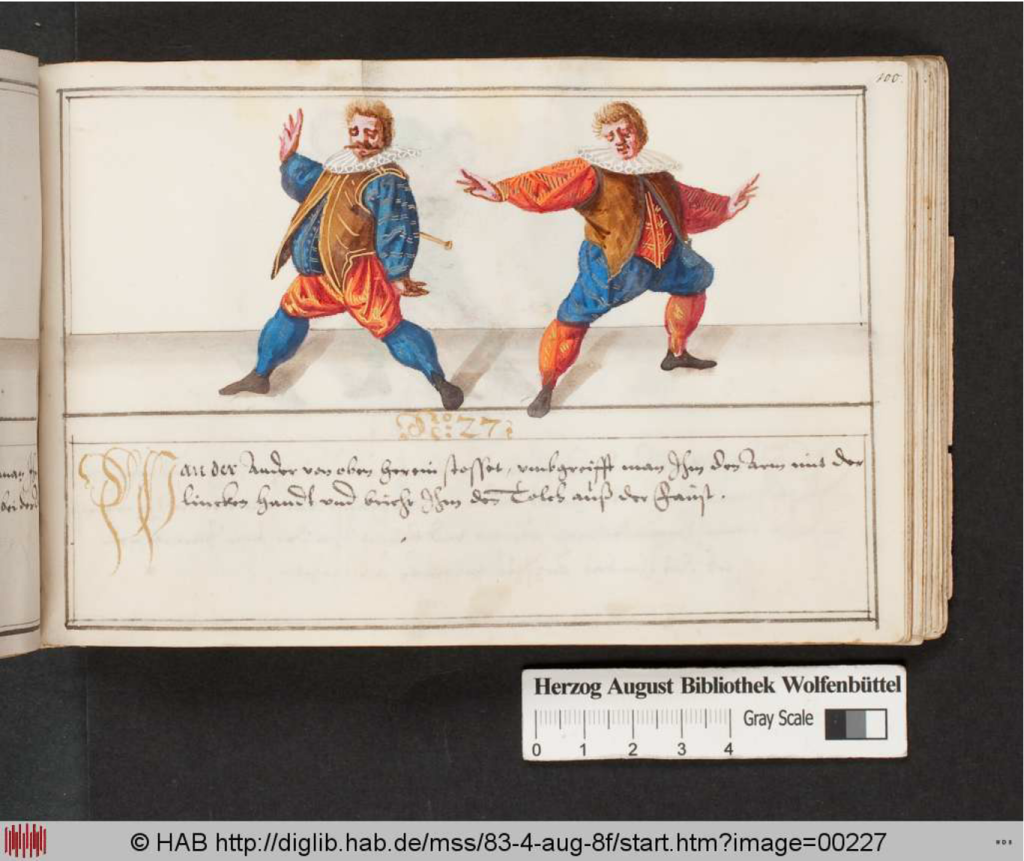 100.
No: 27:
Wan der Ander von oben herein stosset, vmbgreifft man Ihm den Arm mit der
lincken Handt vnd bricht Ihm den Tolch auß der Faust.
Herzog August Bibliothek Wolfenbüttel
Gray Scale
0 1 2 3 4
© HAB http://diglib.hab.de/mss/83-4-aug-8f/start.htm?image=00227